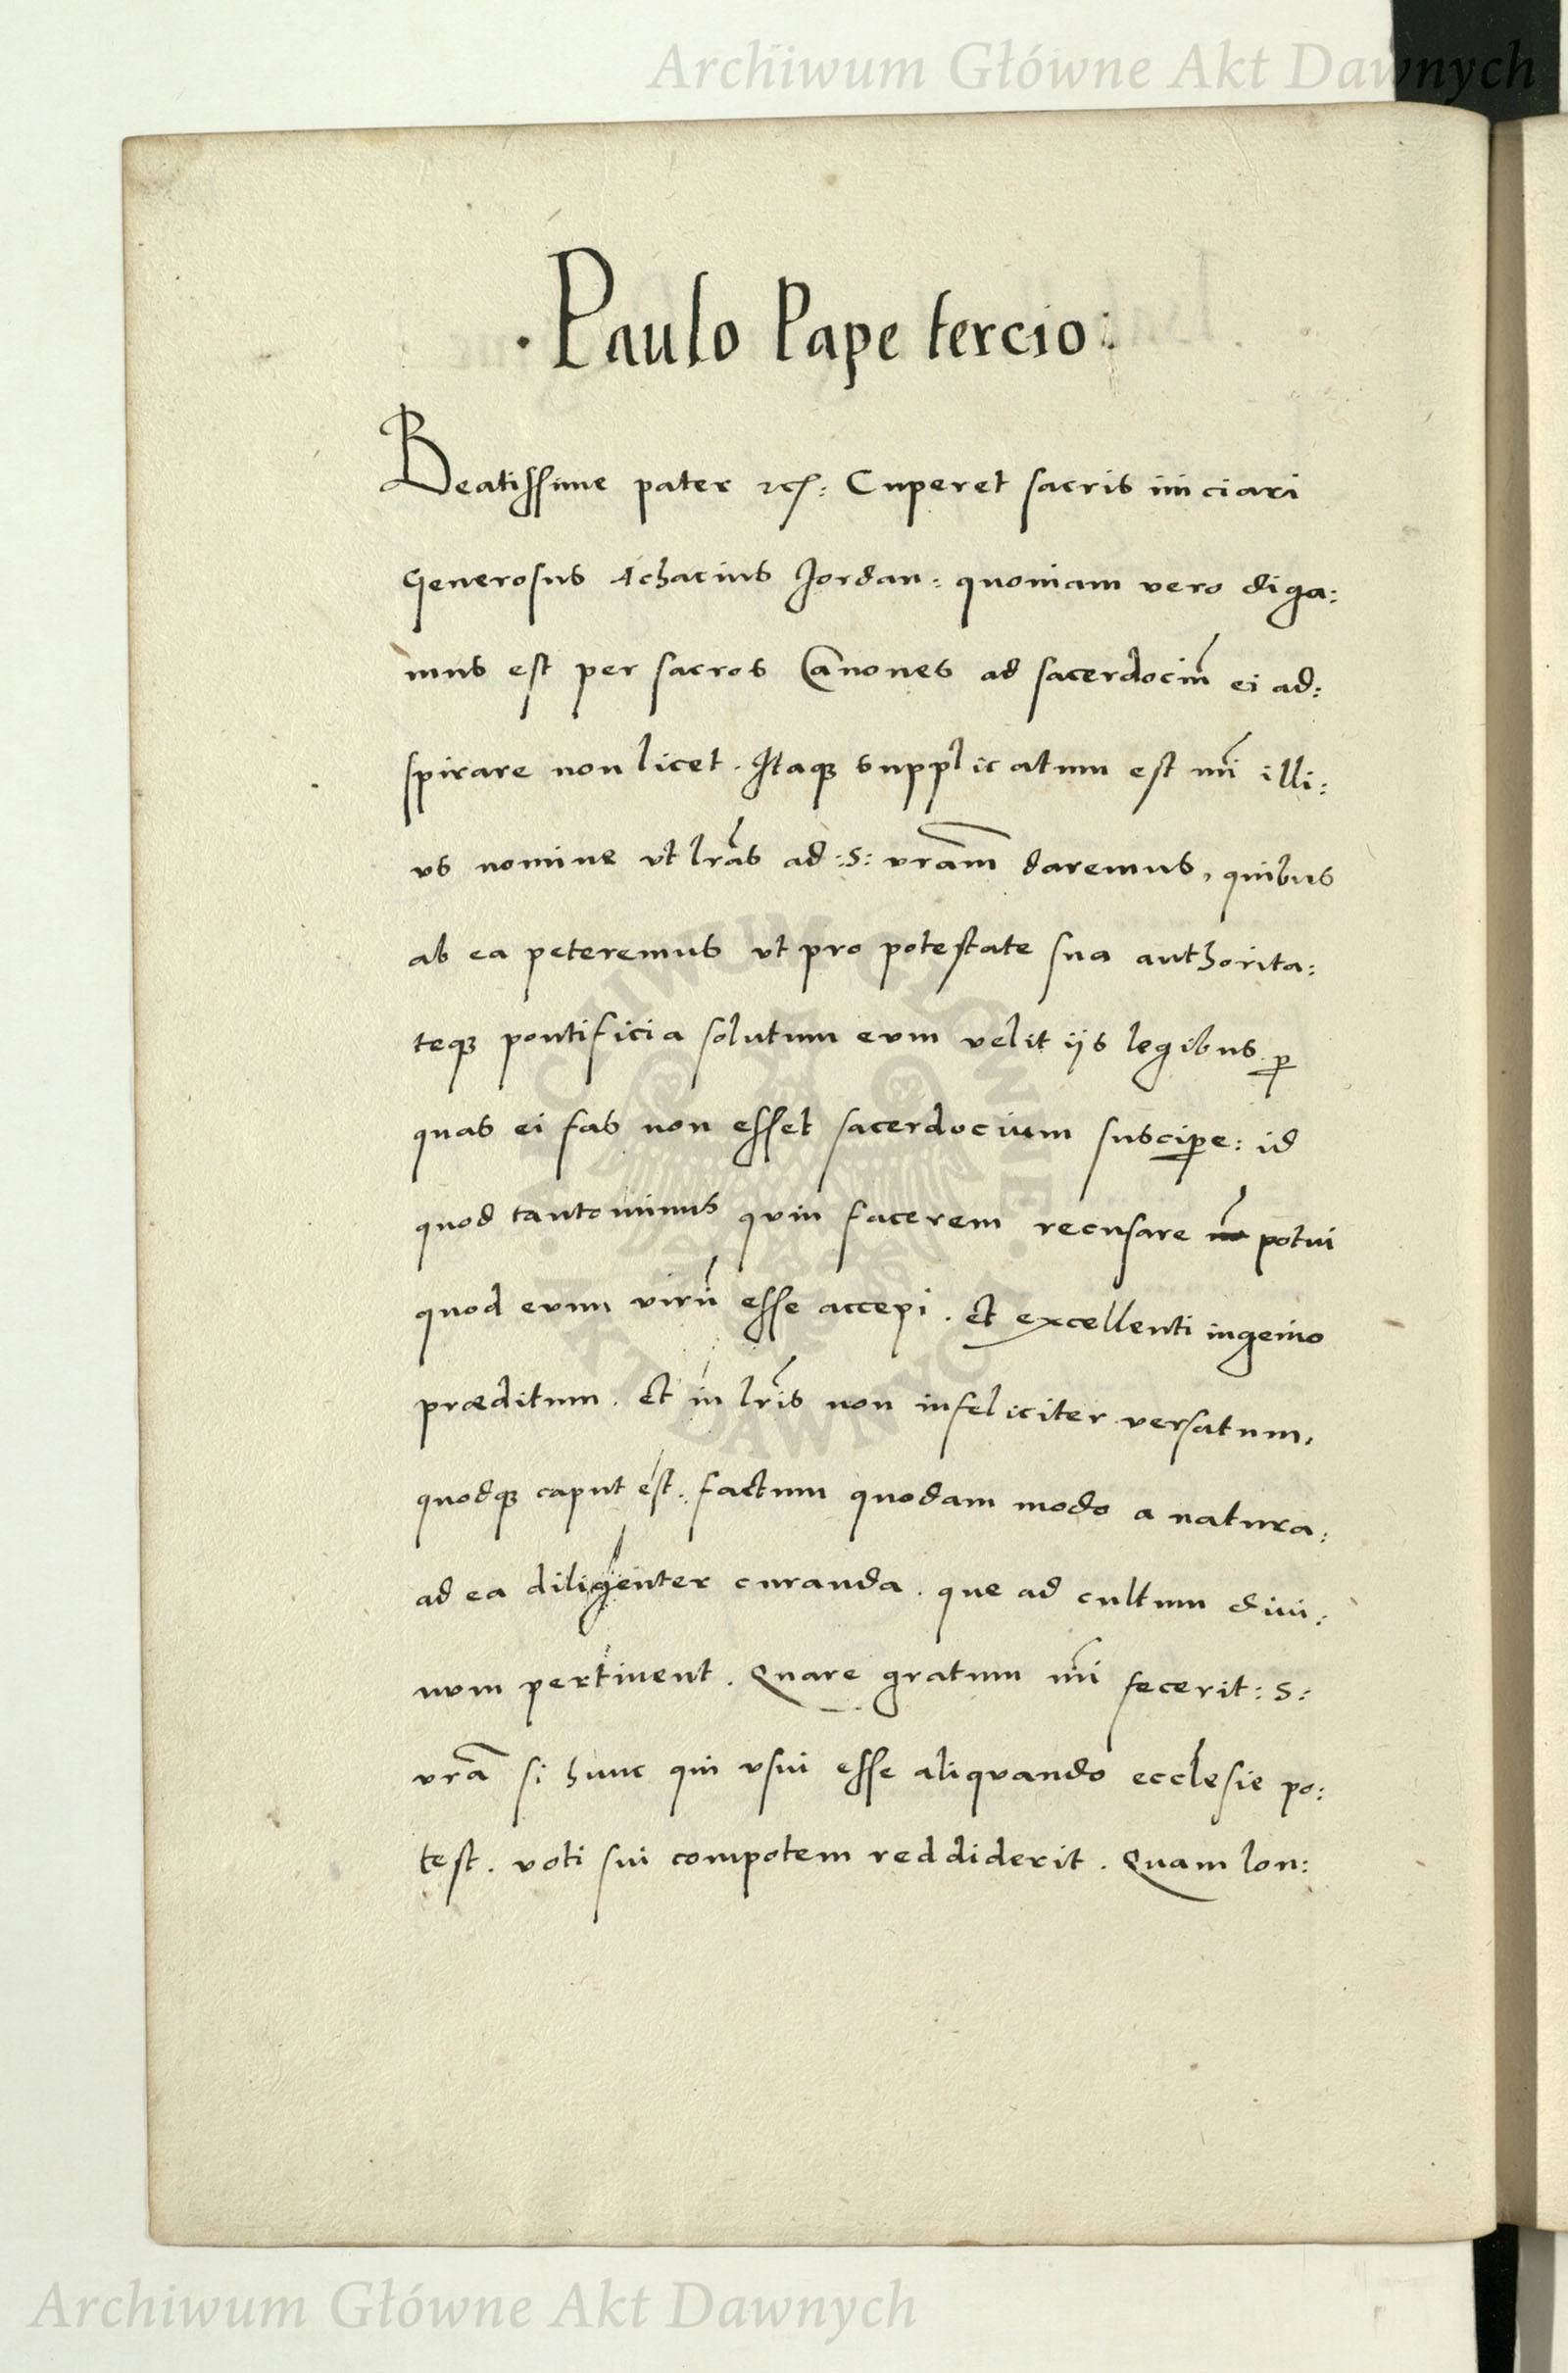 Archiwum Główne Akt Dawnych
· Paulo Pape tercio :
Beatissime pater etc: Cuperet sacris iniciari
Generosus Achacius Jordan: quoniam vero diga:
mus est per sacros Canones ad sacerdociũ ei ad:
spirare non licet. Itaqꝫ supplicatum est mĩ illi:
us nomine vt lr̃as ad :S: vr̃am daremus, quibus
ab ea peteremus vt pro potestate sua authorita:
teqꝫ pontificia solutum eum velit ijs legibus ꝑ
quas ei fas non esset sacerdocium susciꝑe: id
quod tanto minus quin facerem recusare nõ potui
quod eum virũ esse accepi. Et excellenti ingenio
præditum. Et in lr̃is non infeliciter versatum,
quodqꝫ caput est. factum quodam modo a natura:
ad ea diligenter curanda. que ad cultum diui:
num pertinent. Quare gratum mĩ fecerit :S:
vr̃a si hunc qui vsui esse aliquando ecclesie po:
test. voti sui compotem reddiderit. Quam lon:
ARCHIWUM GŁÓWNE AKT DAWNYCH
Archiwum Główne Akt Dawnych